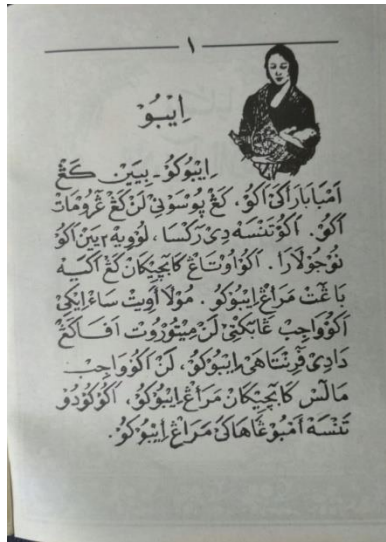 ١
اِيْبُوْ
اِيْبُوْكُوْ ـ بِيَيْنْ كَڠْ
اَمْبَابَارَاَكَيْ اَكُوْ. كَڠْ ڽُوْسَوْنِيْ لَنْ كَڠْ ڠْرُوْمَاتْ
اَكُوْ. اَكُوْ تَنْسَهْ دِيْ رَكْسَا، لُوْوِيْهْ٢ يَيْنْ اَكُوْ
نُوْجُوْ لَارَا. اَكُوْ اُوْتَاڠْ كَابَچِيْكَانْ كَڠْ اَكَيْهْ
بَاڠَتْ مَرَاڠْ اِيْبُوْكُوْ. مُوْلَا اَوِيْتْ سَاءْ اِيْكِيْ
اَكُوْ وَاجِبْ ڠَابَكْتِيْ لَنْ مِيْتُوْرُوْتْ اَفَا كَڠْ
دَادِيْ ڤَرِنْتَاهَيْ اِيْبُوْكُوْ، لَنْ اَكُوْ وَاجِبْ
مَالَسْ كَابَچِيْكَانْ مَرَاڠْ اِيْبُوْكُوْ، اَكُوْ كُوْدُوْ
تَنْسَهْ اَمْبُوْڠَاهَاكَيْ مَرَاڠْ اِيْبُوْكُوْ.